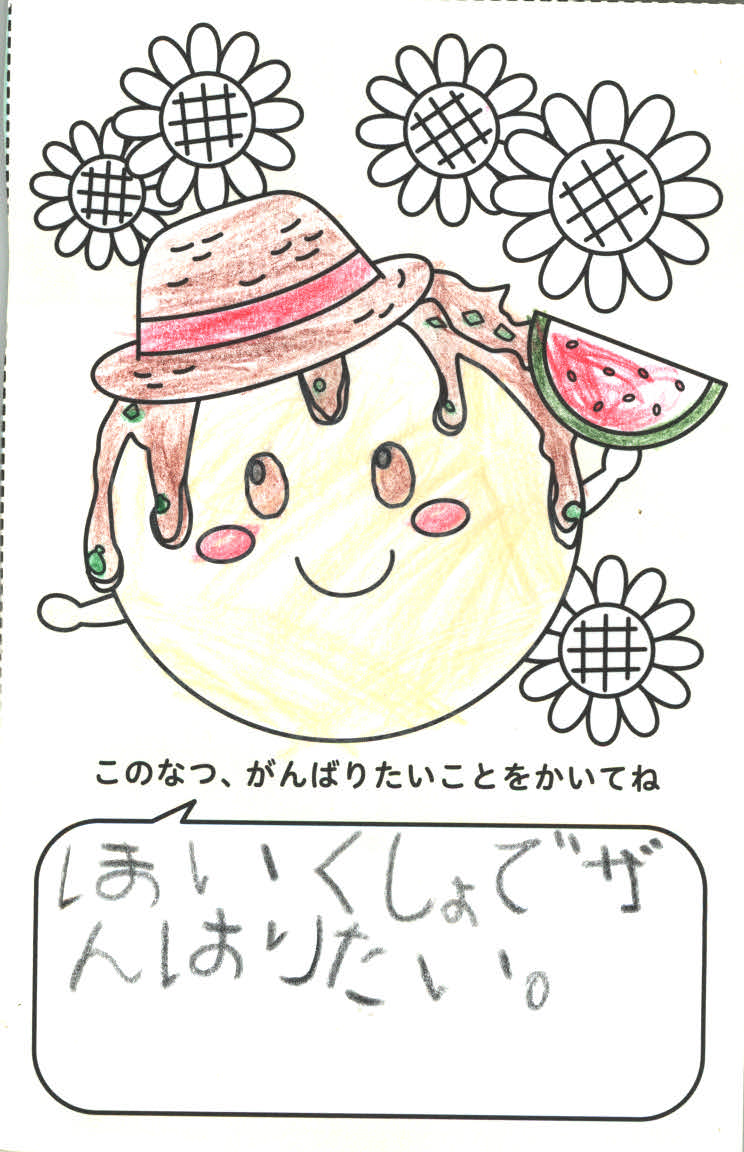 このなつ、がんばりたいことをかいてね
ほいくしょでが
んばりたい。